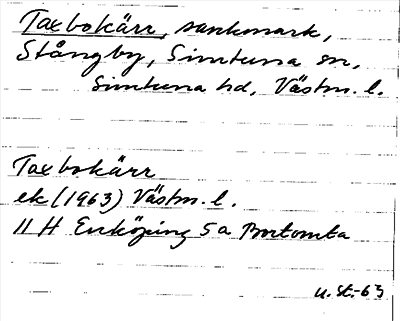 Taxbokärr, sankmark,
Stångby, Simtuna sn,
Simtuna hd, Västm. l.
Taxbokärr
ek (1963) Västm. l.
11 H Enköping 5a Bortomta
u. St.-63